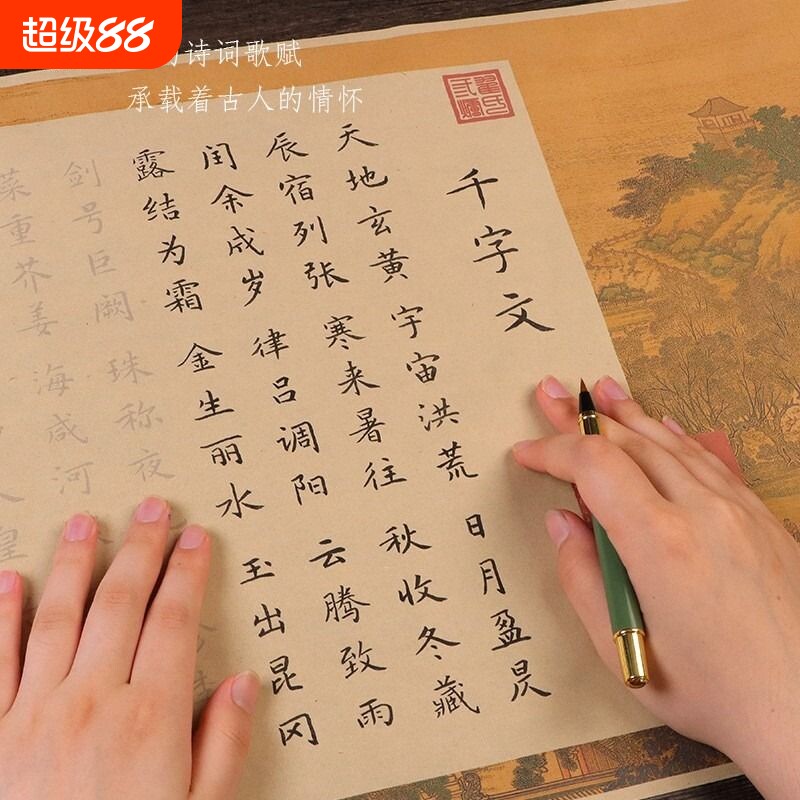 超级88
诗词歌赋
承载着古人的情怀
千字文
天地玄黄 宇宙洪荒 日月盈昃
辰宿列张 寒来暑往 秋收冬藏
闰余成岁 律吕调阳 云腾致雨
露结为霜 金生丽水 玉出昆冈
剑号巨阙 珠称夜
菜重芥姜 海咸河
人皇